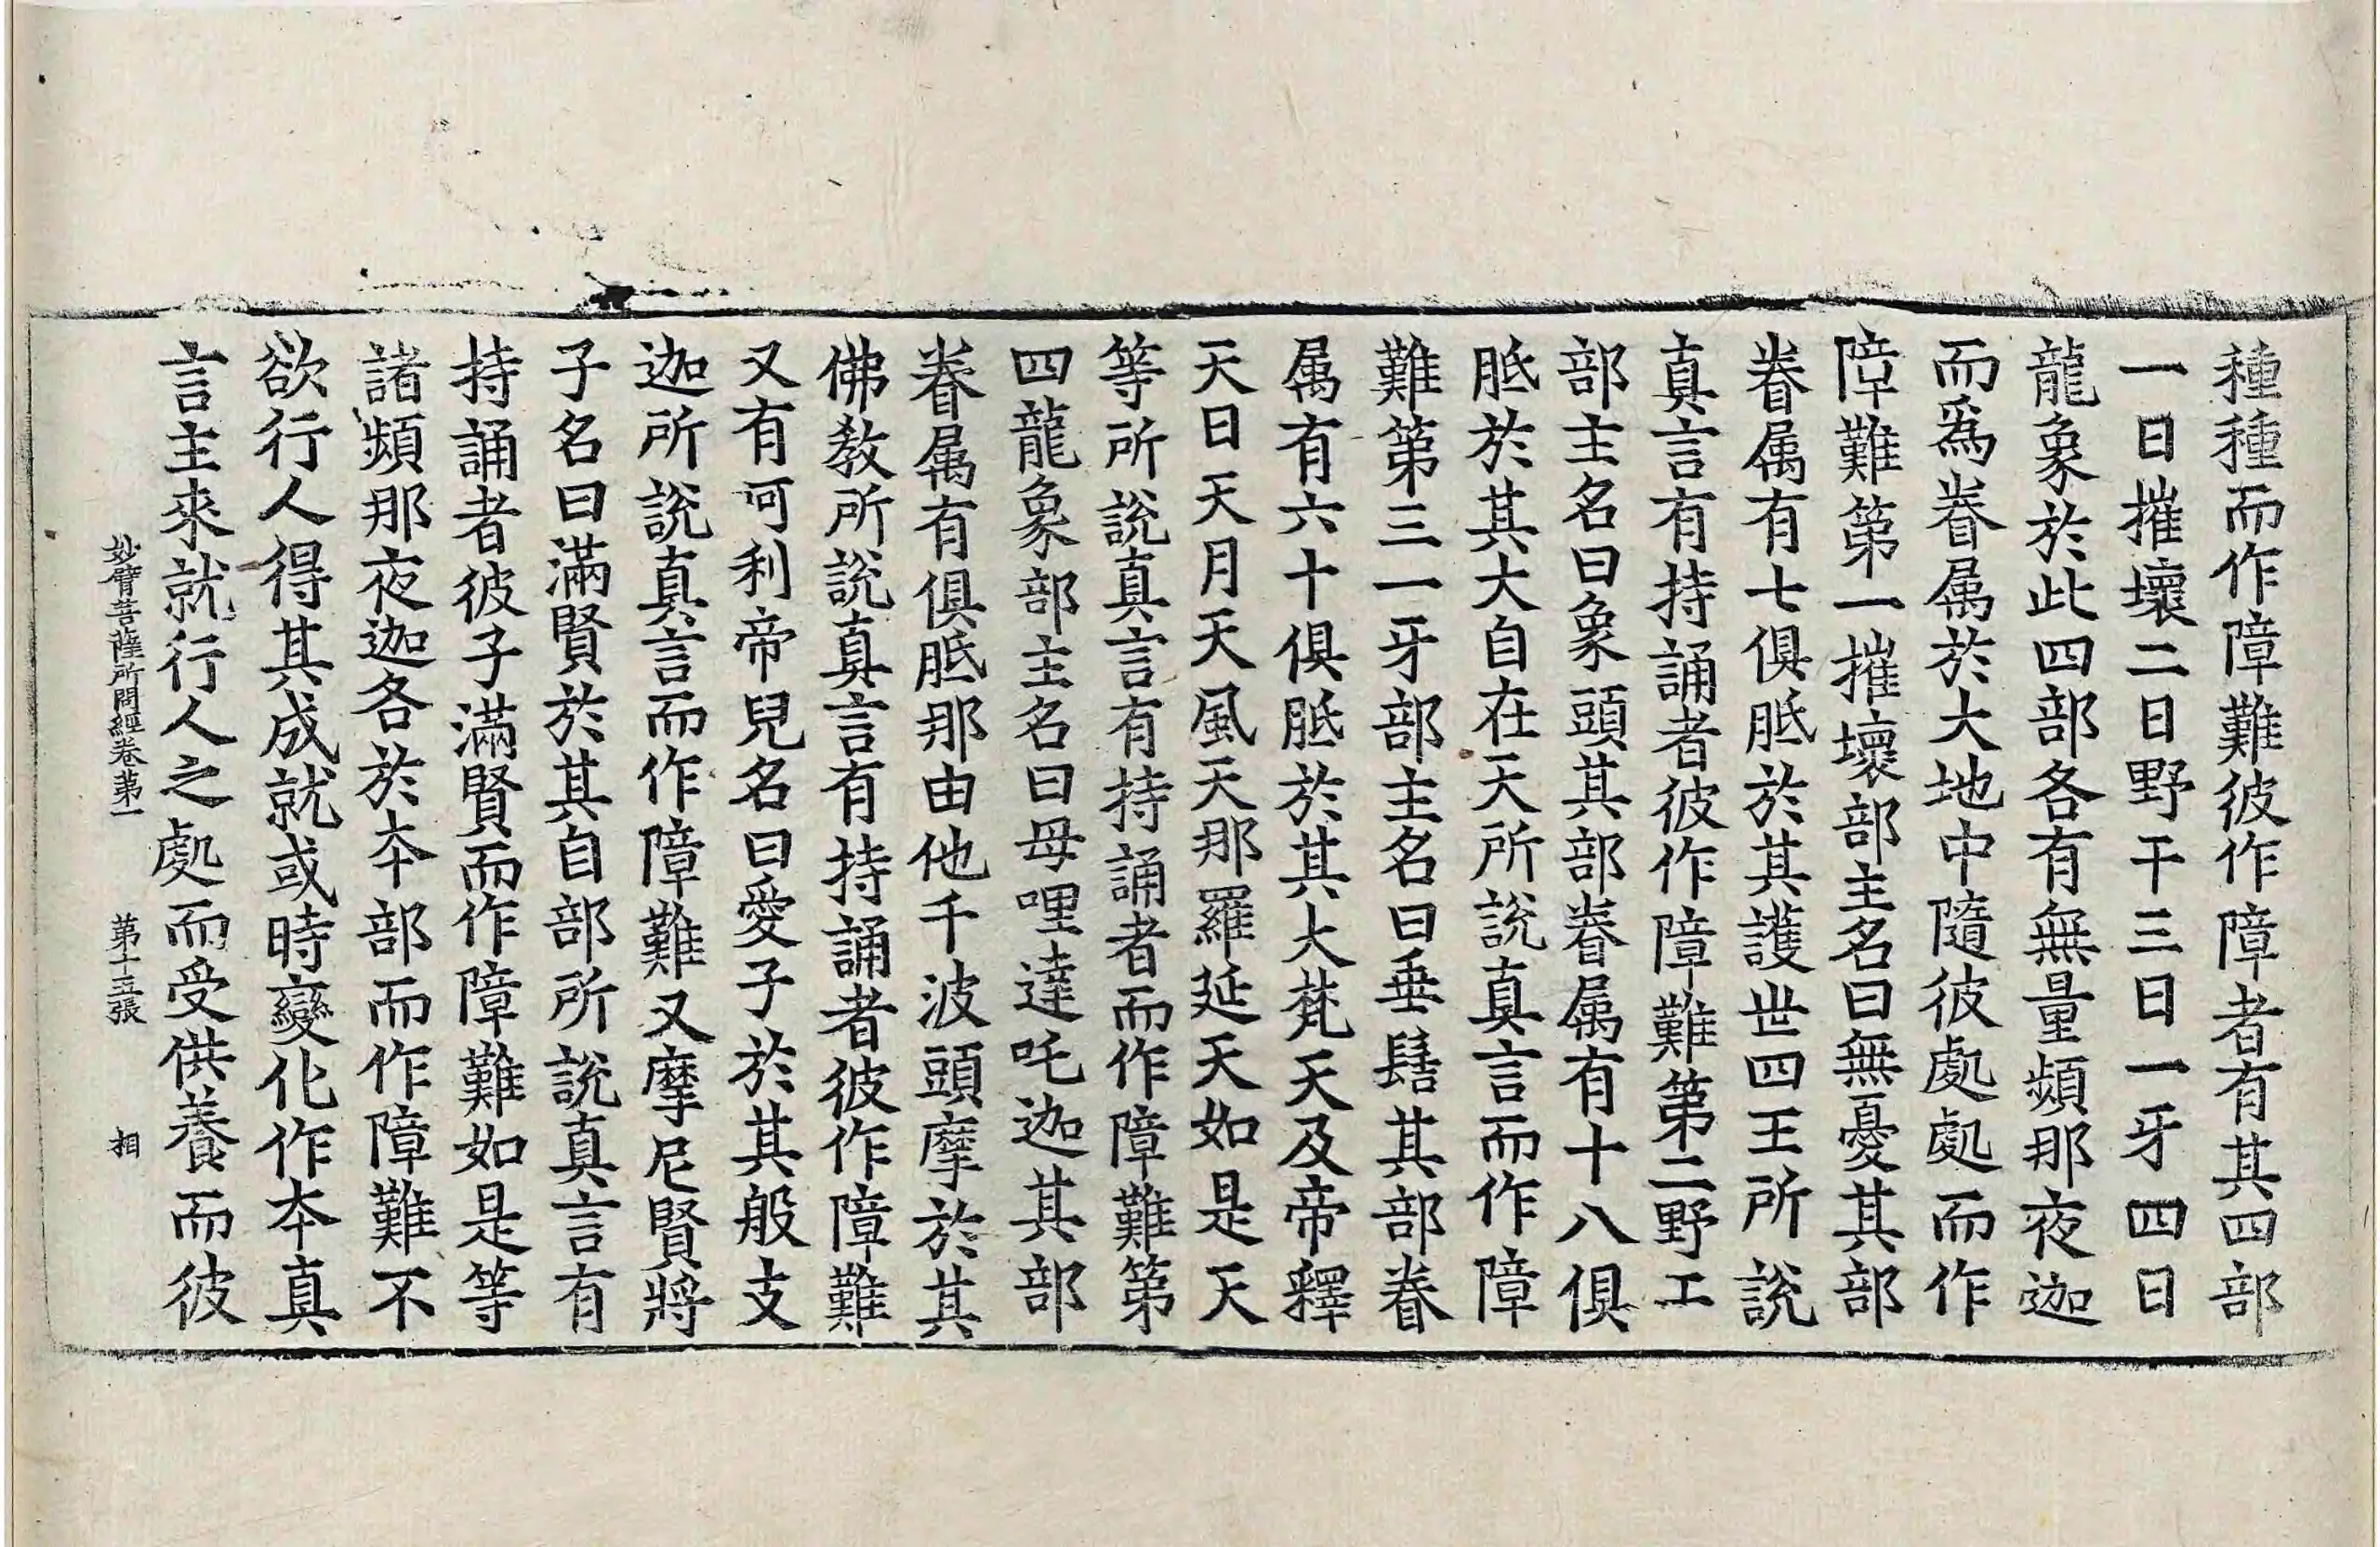 種種而作障難彼作障者有其四部
一曰摧壞二曰野干三曰一牙四曰
龍象於此四部各有無量頻那夜迦
而爲眷属於大地中隨彼處處而作
障難第一摧壞部主名曰無憂其部
眷属有七俱胝於其護世四王所說
真言有持誦者彼作障難第二野工
部主名曰象頭其部眷属有十八俱
胝於其大自在天所說真言而作障
難第三一牙部主名曰垂髻其部眷
属有六十俱胝於其大梵天及帝釋
天日天月天風天那羅延天如是天
等所說真言有持誦者而作障難第
四龍象部主名曰母哩達吒迦其部
眷属有俱胝那由他千波頭摩於其
佛教所說真言有持誦者彼作障難
又有呵利帝兒名曰愛子於其般支
迦所說真言而作障難又摩尼賢將
子名曰滿賢於其自部所說真言有
持誦者彼子滿賢而作障難如是等
諸頻那夜迦各於夲部而作障難不
欲行人得其成就或時變化作夲真
言主來就行人之處而受供養而彼
妙臂菩薩所問經卷第一 第十五張 相